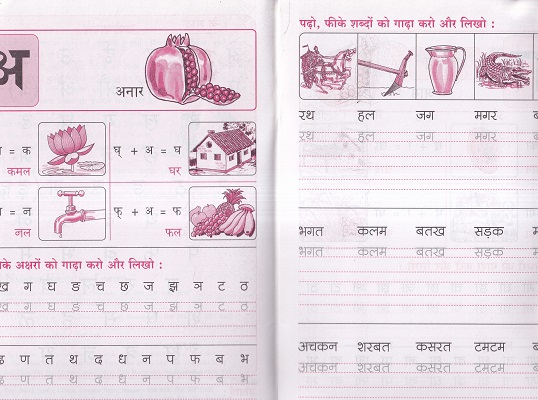 अ
अनार
= क
घ् + अ = घ
कमल
घर
= न
फ् + अ = फ
नल
फल
के अक्षरों को गाढ़ा करो और लिखो :
ख ग घ ङ च छ ज झ ञ ट ठ
ख ग घ ङ च छ ज झ ञ ट ठ
ढ ण त थ द ध न प फ ब भ
ढ ण त थ द ध न प फ ब भ
पढ़ो, फीके शब्दों को गाढ़ा करो और लिखो :
रथ हल जग मगर
रथ हल जग मगर
भगत कलम बतख सड़क
भगत कलम बतख सड़क
अचकन शरबत कसरत टमटम
अचकन शरबत कसरत टमटम